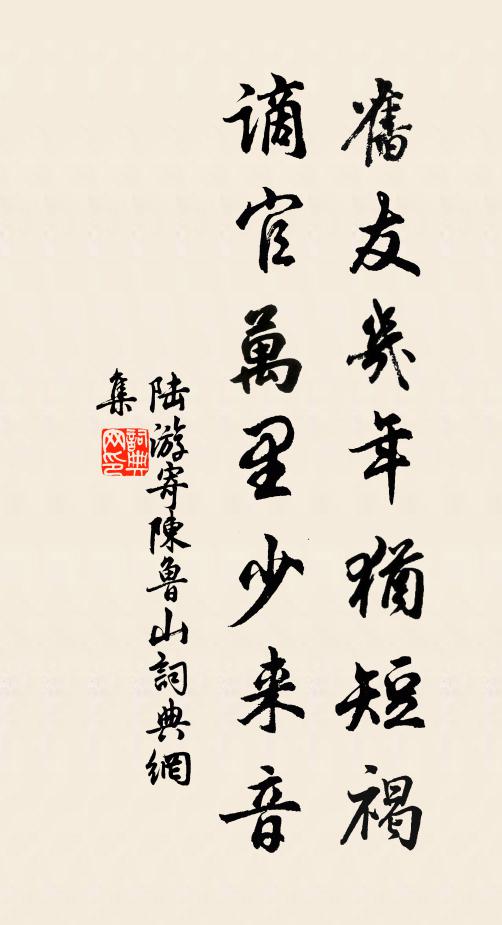 舊友幾年猶短褐
謫官萬里少来音
陆游寄陳魯山詞典網
集
詞典网印